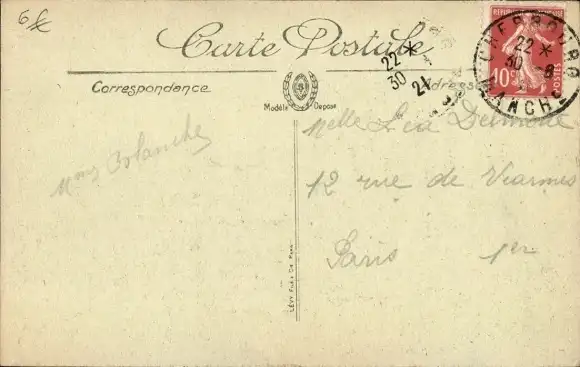 6 €
Carte Postale
Correspondance
Adresse
Modèle Déposé
RÉPUBLIQUE FRANÇAISE
10c
POSTES
CHERBOURG
22 *
30 - 8
MANCHE
22 *
30
21
Mlle Léa Delmotte
12 rue de Viarmes
Paris 1er
Blanche
LÉVY FILS & Cie PARIS